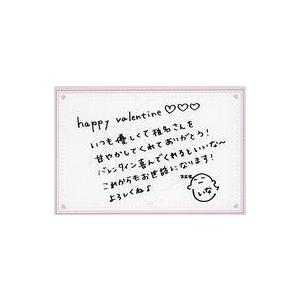 happy valentine♡♡♡
いつも優しくて相名さんを
甘やかしてくれてありがとう!
バレンタイン喜んでくれるといいな〜
これからもお世話になります!
よろしくね♪
いな